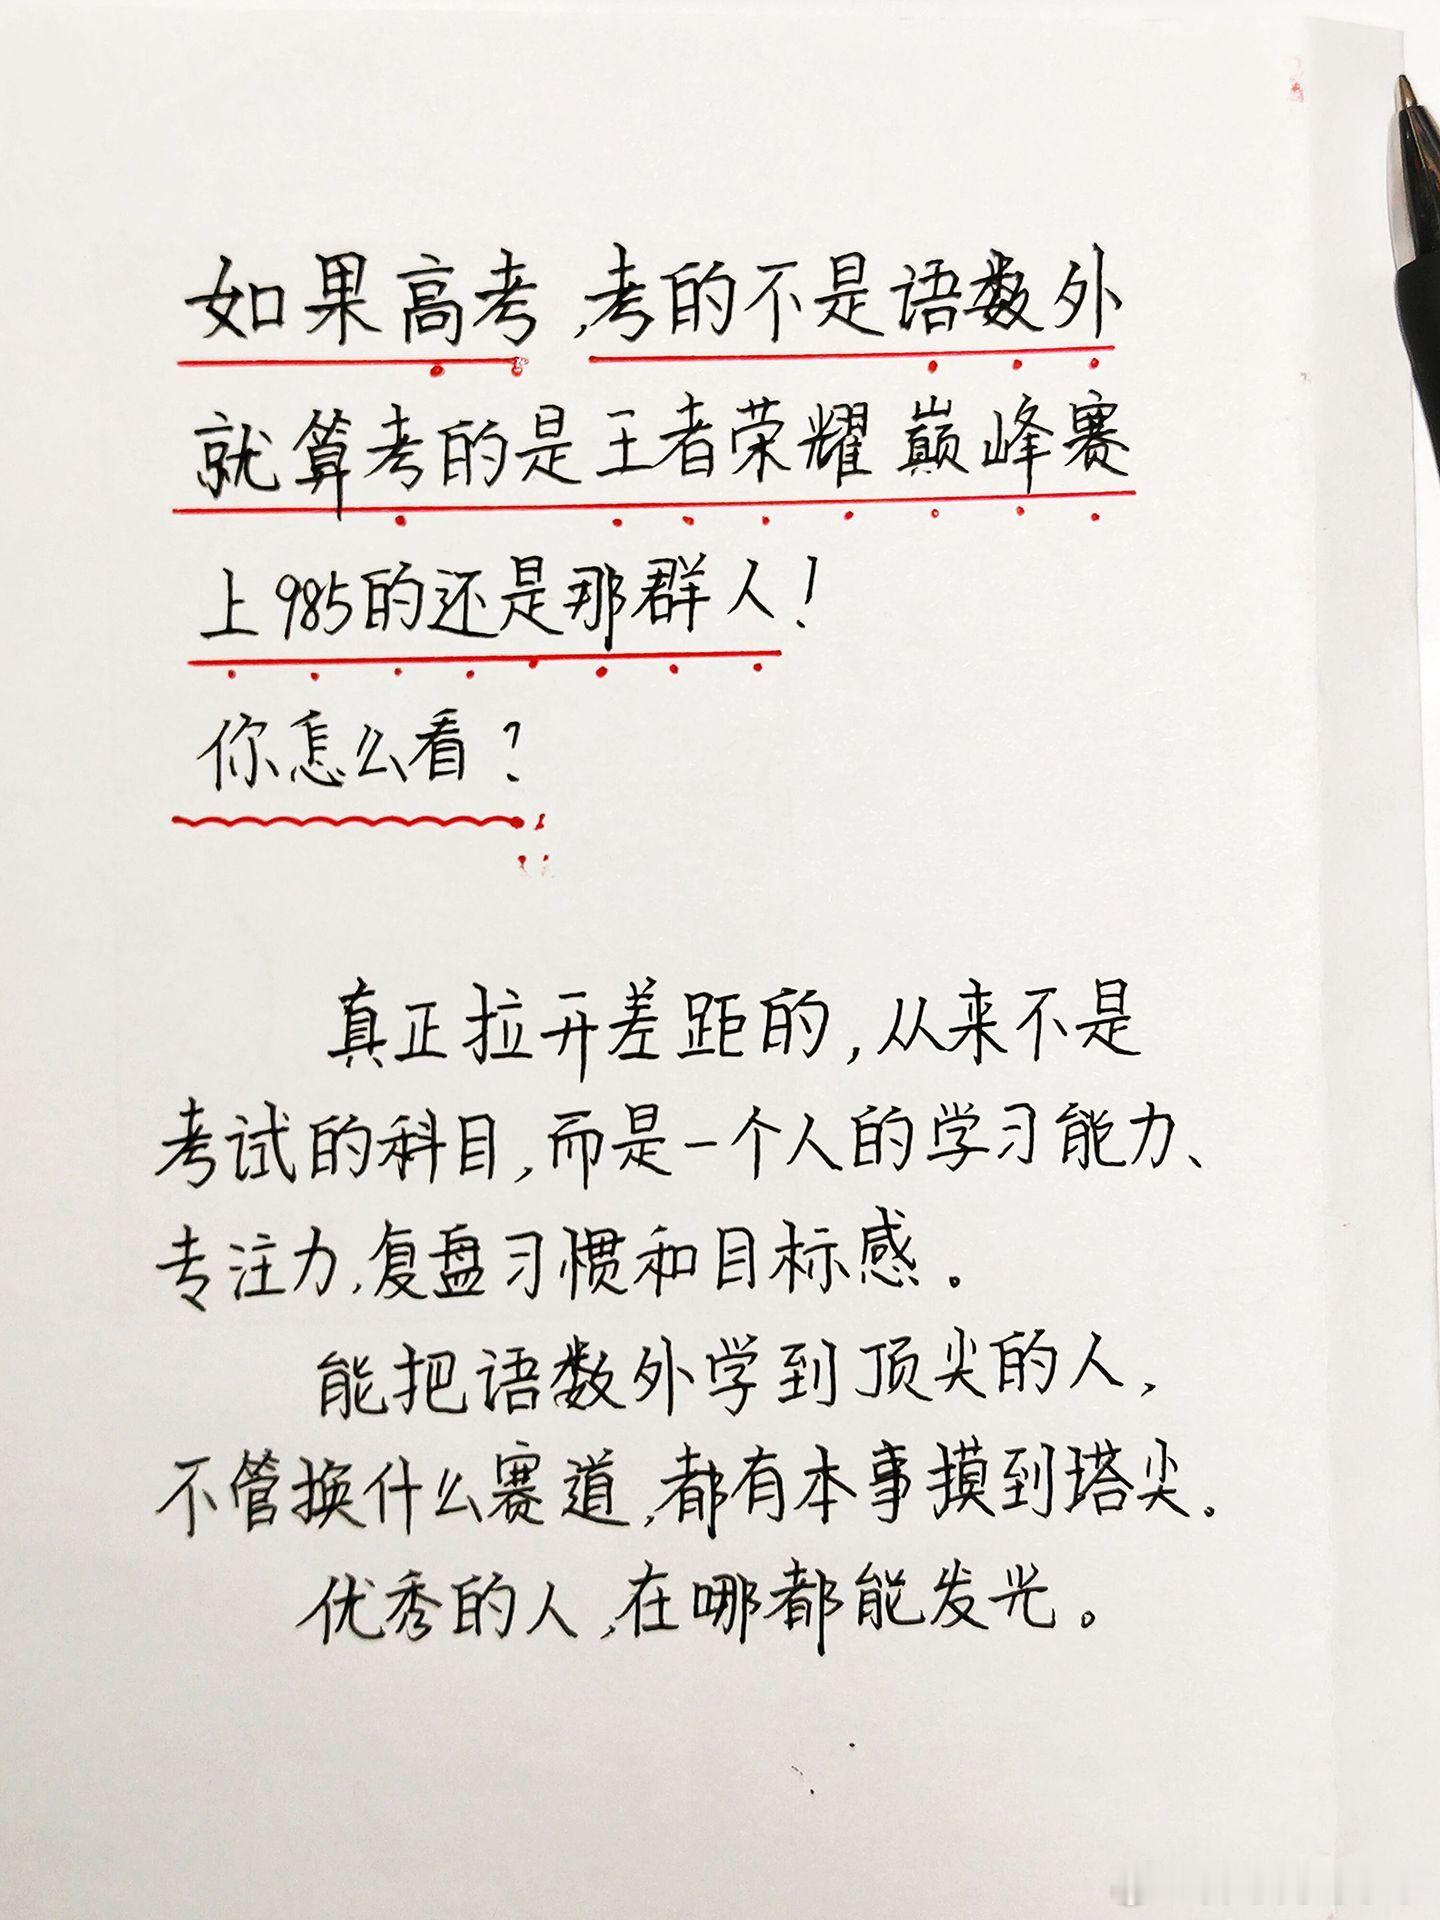 如果高考,考的不是语数外
就算考的是王者荣耀巅峰赛
上985的还是那群人!
你怎么看?
真正拉开差距的,从来不是
考试的科目,而是一个人的学习能力、
专注力,复盘习惯和目标感。
能把语数外学到顶尖的人,
不管换什么赛道,都有本事摸到塔尖。
优秀的人,在哪都能发光。